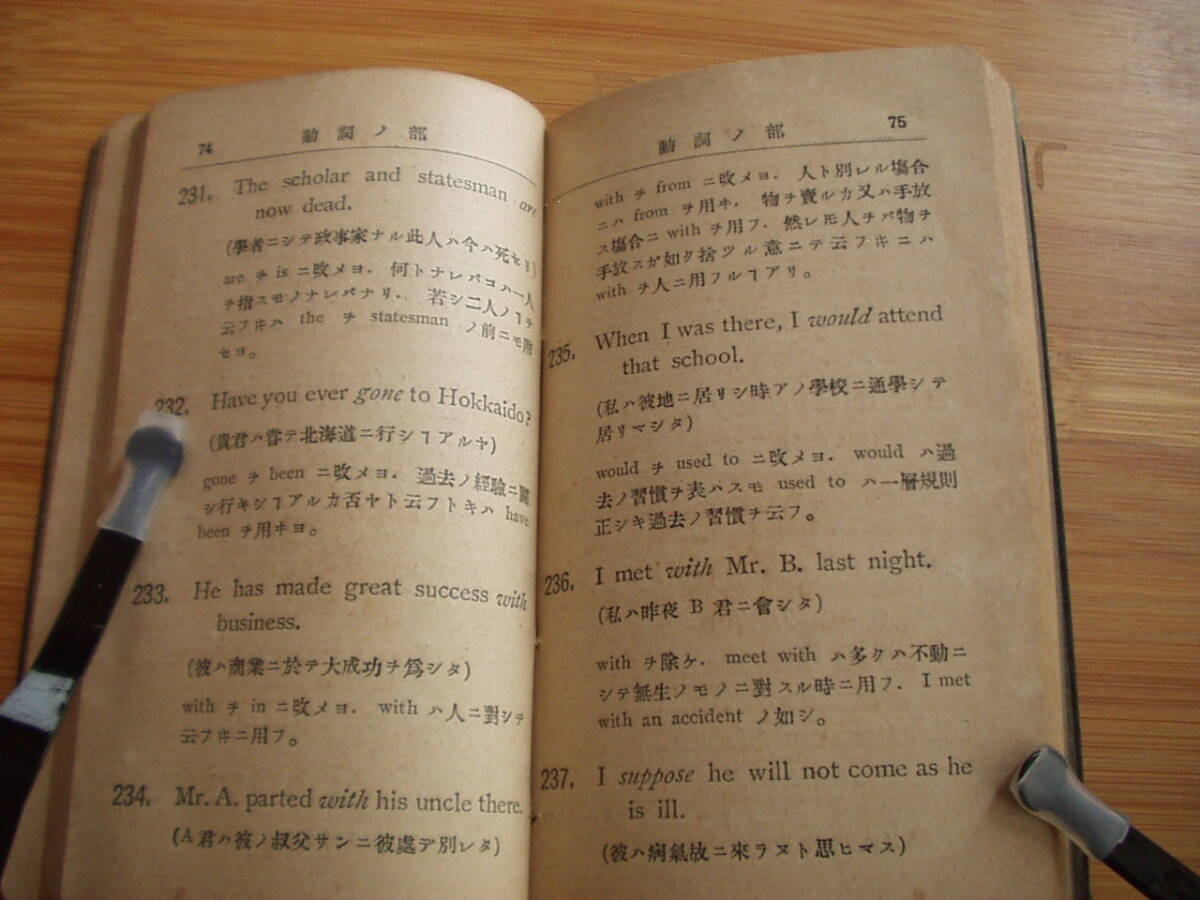 74 動詞ノ部
231. The scholar and statesman are
now dead.
(學者ニシテ政事家ナル此人ハ今ハ死セリ)
are ヲ is ニ改メヨ. 何トナレバコハ一人
ヲ指スモノナレバナリ. 若シ二人ノヿヲ
云フキハ the ヲ statesman ノ前ニモ附
セヨ。
232. Have you ever gone to Hokkaido?
(貴君ハ甞テ北海道ニ行シヿアルヤ)
gone ヲ been ニ改メヨ. 過去ノ經驗ニ關
シ行キシヿアルカ否ヤト云フトキハ have
been ヲ用ヰヨ。
233. He has made great success with
business.
(彼ハ商業ニ於テ大成功ヲ爲シタ)
with ヲ in ニ改メヨ. with ハ人ニ對シテ
云フキニ用フ。
234. Mr. A. parted with his uncle there.
(A君ハ彼ノ叔父サンニ彼處デ別レタ)
動詞ノ部 75
with ヲ from ニ改メヨ. 人ト別レル塲合
ニハ from ヲ用ヰ. 物ヲ賣ルカ又ハ手放
ス塲合ニ with ヲ用フ. 然レモ人ヲバ物ヲ
手放スガ如ク捨ツル意ニテ云フキニハ
with ヲ人ニ用フルヿアリ。
235. When I was there, I would attend
that school.
(私ハ彼地ニ居リシ時アノ學校ニ通學シテ
居リマシタ)
would ヲ used to ニ改メヨ. would ハ過
去ノ習慣ヲ表ハスモ used to ハ一層規則
正シキ過去ノ習慣ヲ云フ。
236. I met with Mr. B. last night.
(私ハ昨夜 B 君ニ會シタ)
with ヲ除ケ. meet with ハ多クハ不動ニ
シテ無生ノモノニ對スル時ニ用フ. I met
with an accident ノ如シ。
237. I suppose he will not come as he
is ill.
(彼ハ病氣故ニ來ラヌト思ヒマス)